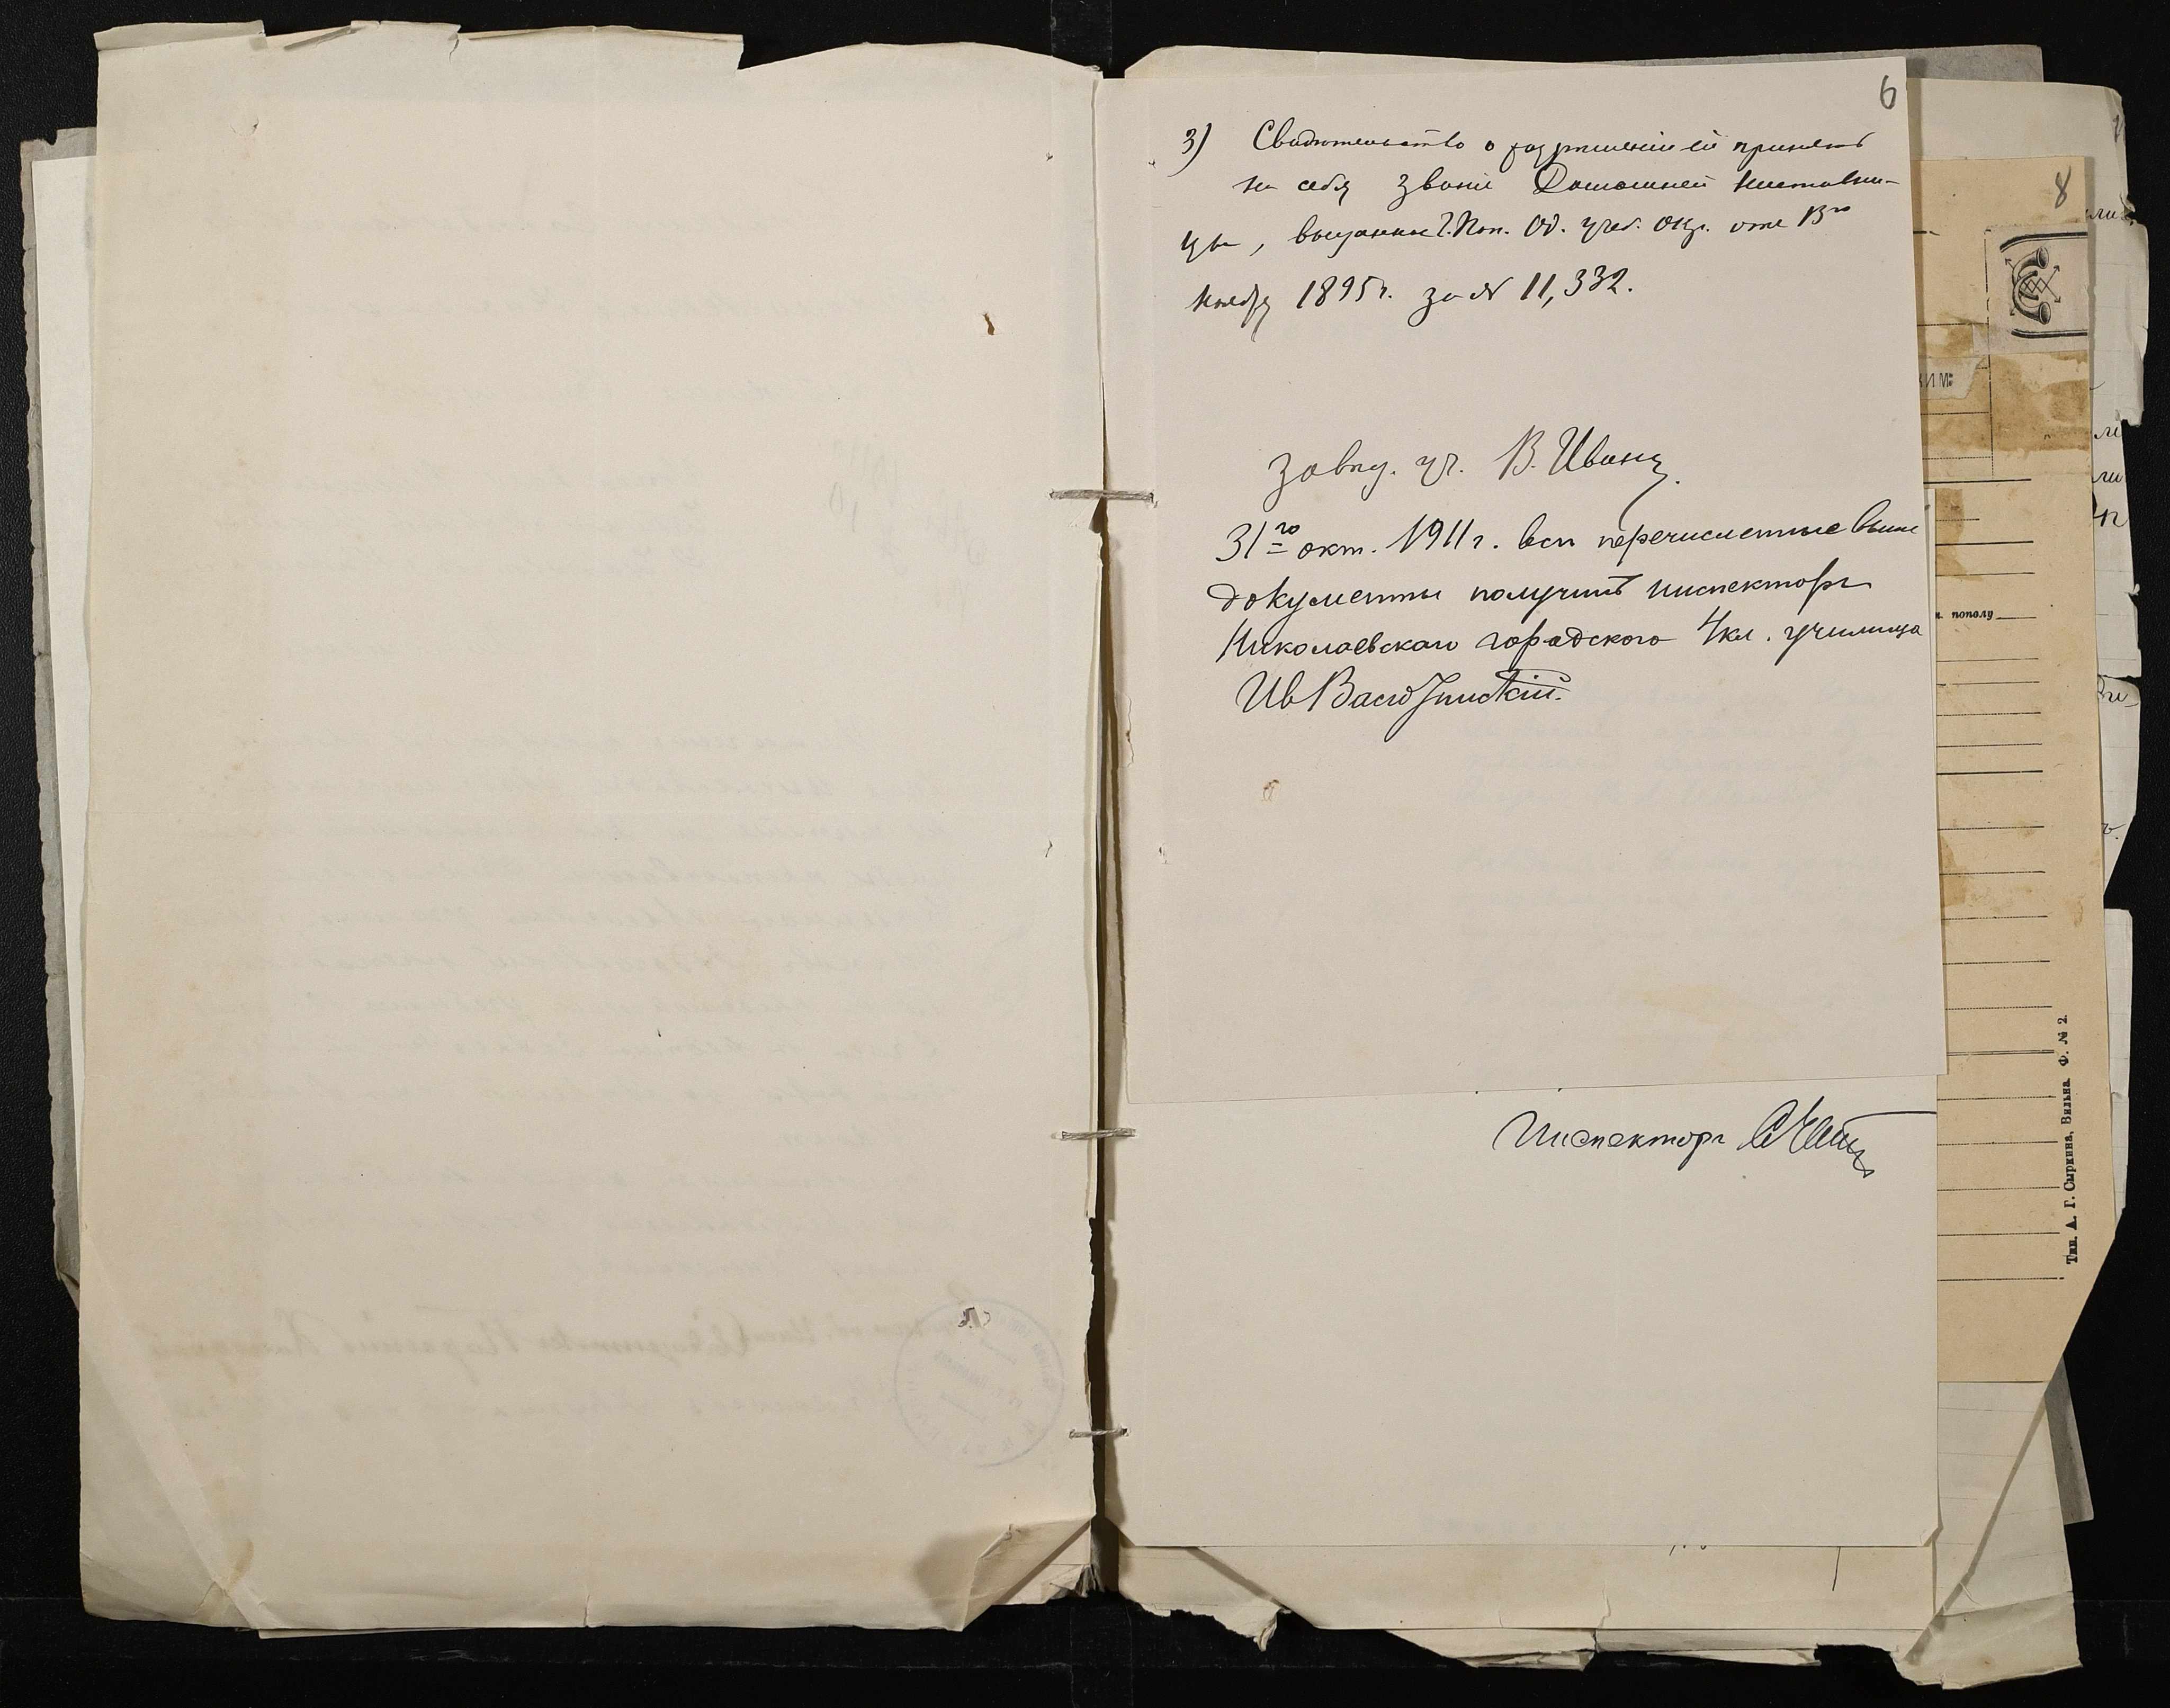 6
3) Свидѣтельство о разрѣшеніи ей принять
на себя званіе Домашней Наставни-
цы, выданное Г. Поп. Од. Учеб. Окр. отъ 13го
Ноября 1895 г. за № 11,332.
Завѣд. уч. В.
31го окт. 1911 г. всѣ перечисленные выше
документы получилъ инспекторъ
Николаевскаго городского 4кл. училища
Ив
Инспекторъ
8
н. пополу
Тип. А. Г. Сыркина, Вильна. Ф. № 2.